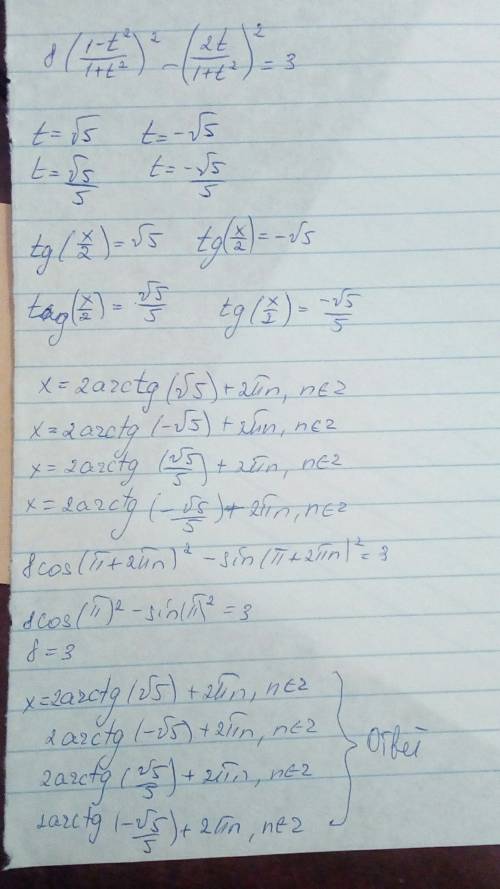 8((1-t²)/(1+t²))² - (2t/(1+t²))² = 3
t = √5 t = -√5
t = √5/5 t = -√5/5
tg(x/2) = √5 tg(x/2) = -√5
tg(x/2) = √5/5 tg(x/2) = -√5/5
x = 2arctg(√5) + 2πn, n∈z
x = 2arctg(-√5) + 2πn, n∈z
x = 2arctg(√5/5) + 2πn, n∈z
x = 2arctg(-√5/5) + 2πn, n∈z
8cos(π+2πn)² - sin(π+2πn)² = 3
8cos(π)² - sin(π)² = 3
8 = 3
x = 2arctg(√5) + 2πn, n∈z
2arctg(-√5) + 2πn, n∈z
2arctg(√5/5) + 2πn, n∈z
2arctg(-√5/5) + 2πn, n∈z
Ответ